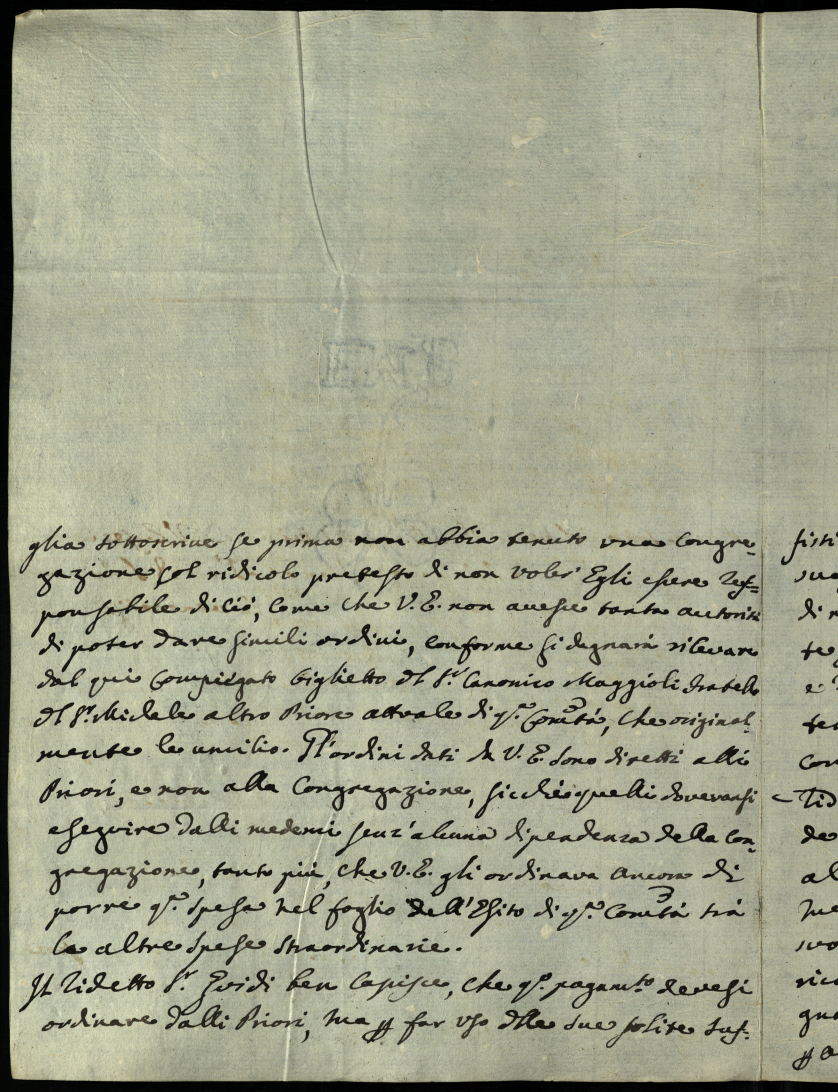 glia sottoscrive se prima non abbia tenuto una Congre=
gazione sol ridicolo pretesto di non voler Egli essere res=
ponsabile di ciò, come che V. E. non avesse tanta autorità
di poter dare simili ordini, conforme si degnarà rilevare
dal qui compiegato biglietto del Sr. Canonico Maggioli fratello
del Sr. Michele altro Priore attuale di qta. Comtà, che original=
mente le umilio. Gl'ordini dati da V. E. sono diretti alli
Priori, e non alla Congregazione, sicchè quelli dovevansi
eseguire dalli medemi senz'alcuna dipendenza della Con=
gregazione, tanto più, che V. E. gli ordinava ancora di
porre qta. spesa nel foglio dell'Esito di qta. Comtà trà
le altre spese straordinarie.
Il ridetto Sr. Guidi ben capisce, che qto. pagamto. devesi
ordinare dalli Priori, ma p far uso delle sue solite suf=
sisti
sue
di n
te
e
ten
con
rid
de
al
me
suo
rico
gna
p a